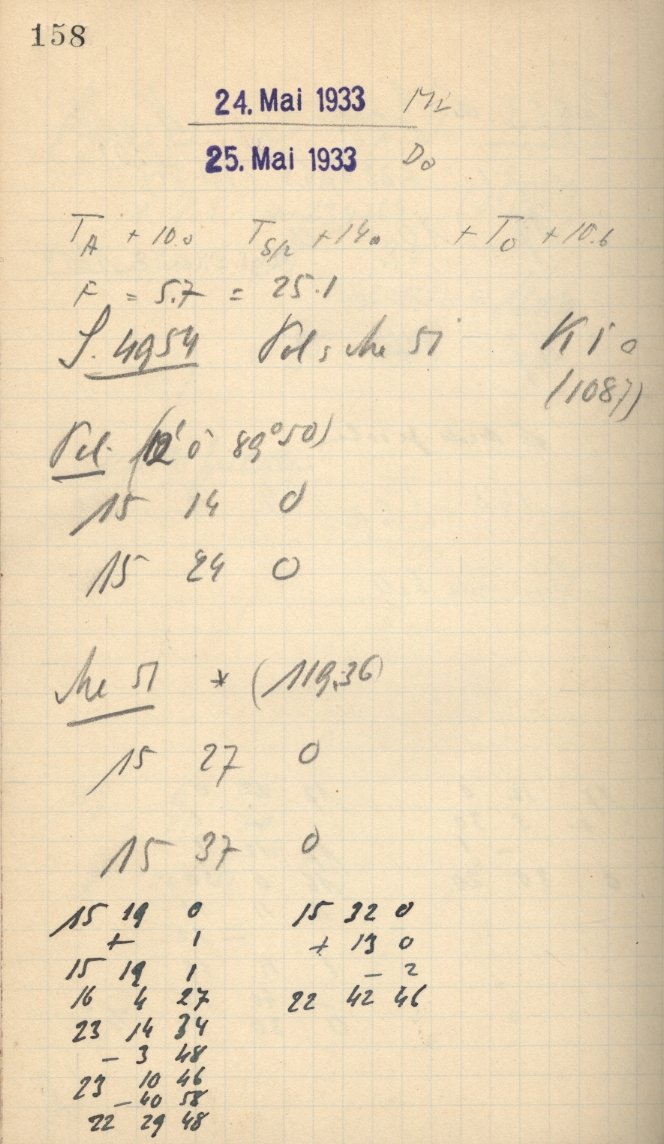 158
24. Mai 1933 Mi
25. Mai 1933 Do
T_A + 10.0 T_Sp + 14.0 + T_O + 10.6
F = 5.7 = 25.1
S. 4954 Pol; Me 51
(1087)
Pol. 0 89°50)
15 14 0
15 24 0
Me 51 * (119,36)
15 27 0
15 37 0
15 19 0 15 32 0
+ 1 + 13 0
15 19 1 - 2
16 4 27 22 42 46
23 14 34
- 3 48
23 10 46
- 40 58
22 29 48